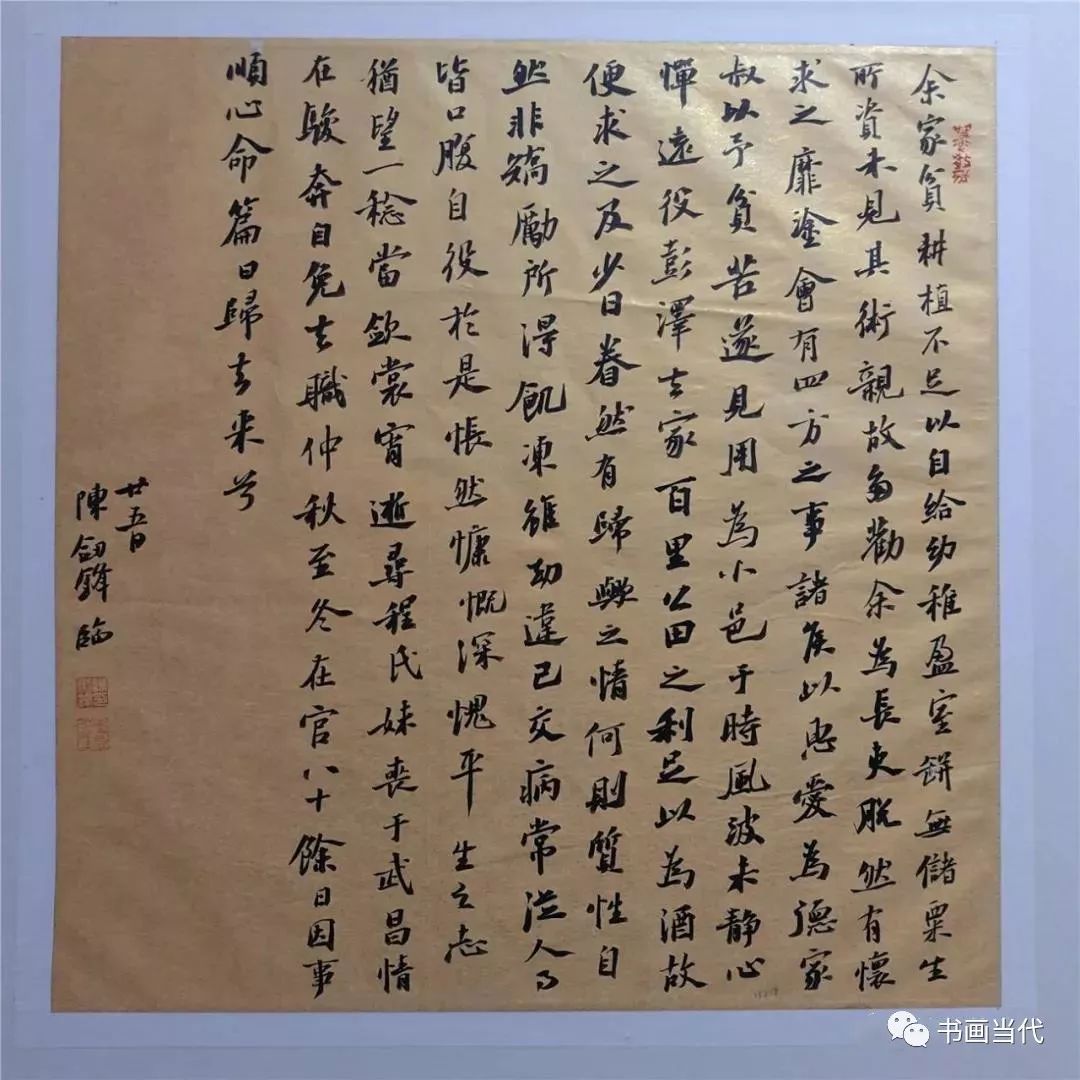 余家貧耕植不足以自給幼稚盈室缾無儲粟生
所資未見其術親故多勸余為長吏脫然有懷
求之靡塗會有四方之事諸侯以惠愛為德家
叔以予貧苦遂見用為小邑于時風波未靜心
憚遠役彭澤去家百里公田之利足以為酒故
便求之及少日眷然有歸歟之情何則質性自
然非矯勵所得飢凍雖切違己交病常從人事
皆口腹自役於是悵然慷慨深愧平生之志
猶望一稔當斂裳宵逝尋程氏妹喪于武昌情
在駿奔自免去職仲秋至冬在官八十餘日因事
順心命篇曰歸去來兮
廿五日
陳劍鋒臨
书画当代